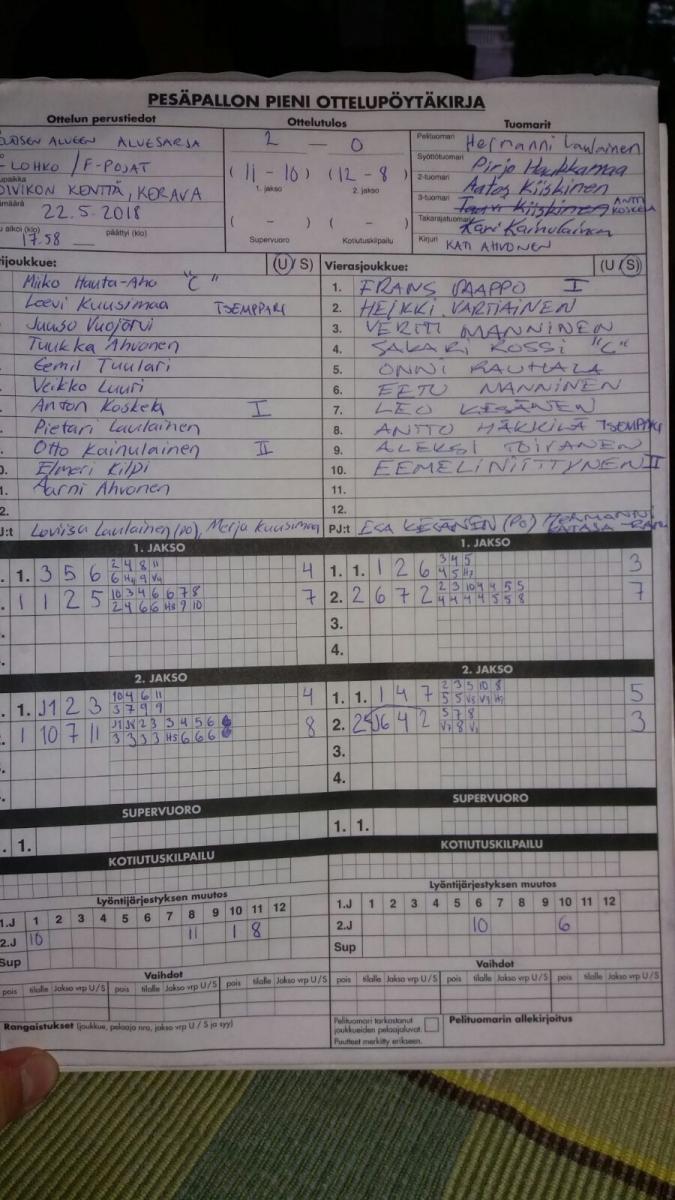 PESÄPALLON PIENI OTTELUPÖYTÄKIRJA
Ottelun perustiedot
ALUEEN ALUESARJA
- LOHKO / F-POJAT
KENTTÄ, KERAVA
22.5-2018
alkoi (klo) 17.58 päättyi (klo)
Ottelutulos
2 — 0
(11 - 10) (12 - 8)
1. jakso 2. jakso
( - ) ( - )
Supervuoro Kotiutuskilpailu
Tuomarit
Pelituomari Hermanni Laulainen
Syöttötuomari Pirjo
2-tuomari Aatos Kiiskinen
3-tuomari Kiiskinen ANTTI KOSKELA
Takarajatuomari Kari Kainulainen
Kirjuri KATI AHVONEN
(U / S)
Miiko Hauta-Aho "C"
Leevi Kuusimaa TSEMPPARI
Juuso Vuojärvi
Tuukka Ahvonen
Eemil Tuulari
Veikko Luuri
Anton Koskela I
Pietari Laulainen
Otto Kainulainen II
Elmeri Kilpi
1. Aarni Ahvonen
2.
PJ:t Loviisa Laulainen (PO), Merja Kuusimaa
Vierasjoukkue: (U / S)
1. FRANS RAAPPO I
2. HEIKKI VARTIAINEN
3. VERTTI MANNINEN
4. SAKARI ROSSI "C"
5. ONNI RAUHALA
6. EETU MANNINEN
7. LEO KESÄNEN
8. ANTTO HÄKKILÄ TSEMPPARI
9. ALEKSI TOIVANEN
10. EEMELI NIITTYNEN II
11.
12.
PJ:t ESA KESÄNEN (PO)
1. JAKSO
1. 3 5 6 2 4 8 11 4
6 H4 9 V4
1 1 2 5 10 3 4 6 6 7 8 7
2 4 6 6 H8 9 10
1. JAKSO
1. 1. 1 2 6 3 4 5 3
4 5 H7
2. 2 6 7 2 2 3 10 4 4 5 5 7
4 4 4 4 5 5 8
3.
4.
2. JAKSO
1. J1 2 3 10 4 6 11 4
3 7 9 9
1 10 7 11 2 3 3 4 5 6 8
3 3 3 3 H5 6 6 6
2. JAKSO
1. 1. 1 4 7 2 3 5 10 8 5
2. 6 4 2 5 7 8 3
3.
4.
SUPERVUORO
1.
SUPERVUORO
1. 1.
KOTIUTUSKILPAILU
KOTIUTUSKILPAILU
Lyöntijärjestyksen muutos
1.J 1 2 3 4 5 6 7 8 9 10 11 12
2.J 10 11 1 8
Sup
Lyöntijärjestyksen muutos
1.J 1 2 3 4 5 6 7 8 9 10 11 12
2.J 10 6
Sup
Vaihdot
pois tilalle Jakso vrp U / S pois tilalle Jakso vrp U / S pois tilalle Jakso vrp U / S
Vaihdot
pois tilalle Jakso vrp U / S pois tilalle Jakso vrp U / S pois tilalle Jakso vrp U / S
Rangaistukset (joukkue, pelaaja nro, jakso vrp U / S ja syy)
Pelituomari tarkastanut
joukkueiden pelaajaluvat.
Puutteet merkitty erikseen.
Pelituomarin allekirjoitus